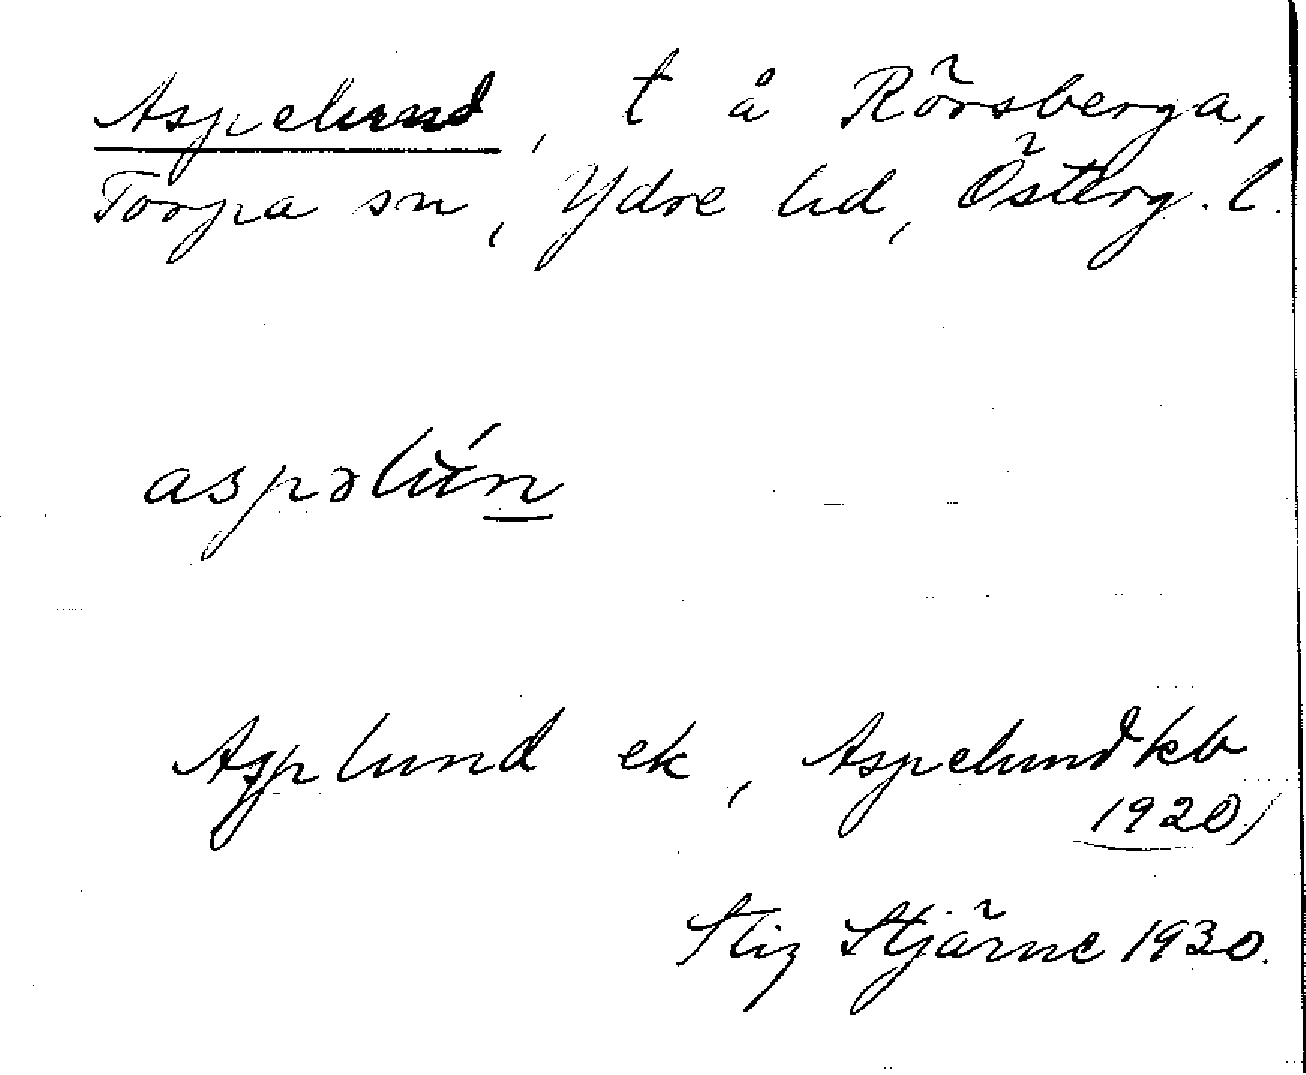 Aspelund, t å Rörsberga,
Torpa sn, Ydre hd, Österg. l.
aspəlún
Asplund ek, Aspelund kb
1920
Stig Stjärne 1930.